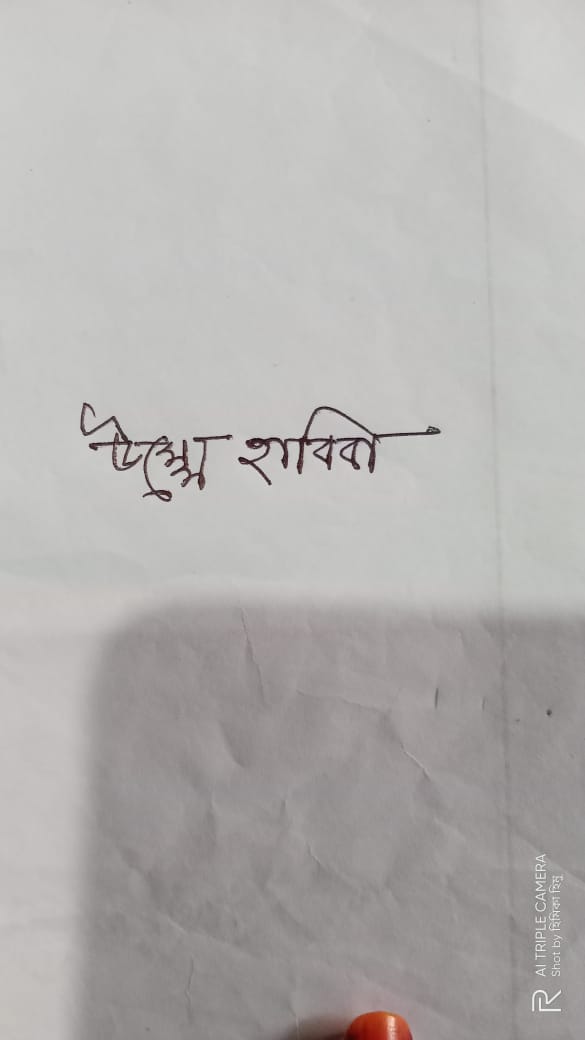 উম্মে হাবিবা
AI TRIPLE CAMERA
Shot by হিমিকা হিমু